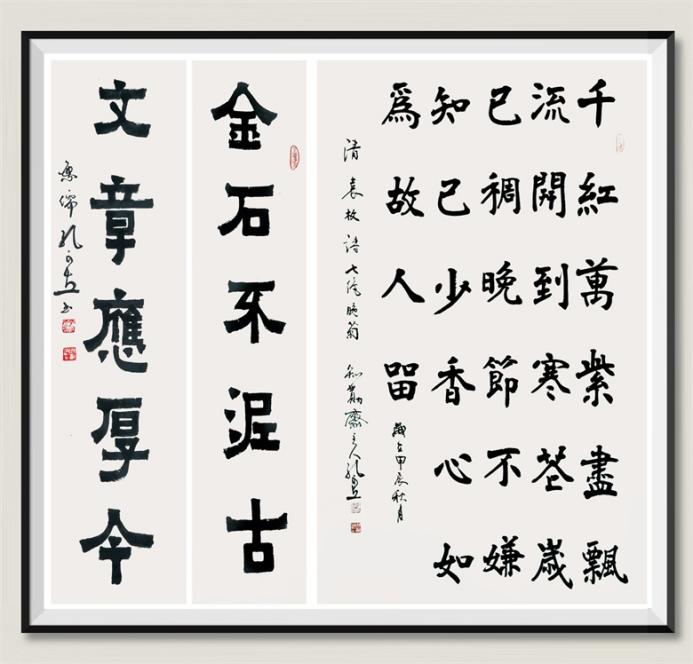 千紅萬紫盡飄
流開到寒花歲
已稠晚節不嫌
知己少香心如
為故人留
歲在甲辰秋月
清袁枚詩七絕晚菊 齋主人孔
金石不泥古
文章應厚今
魯儒孔